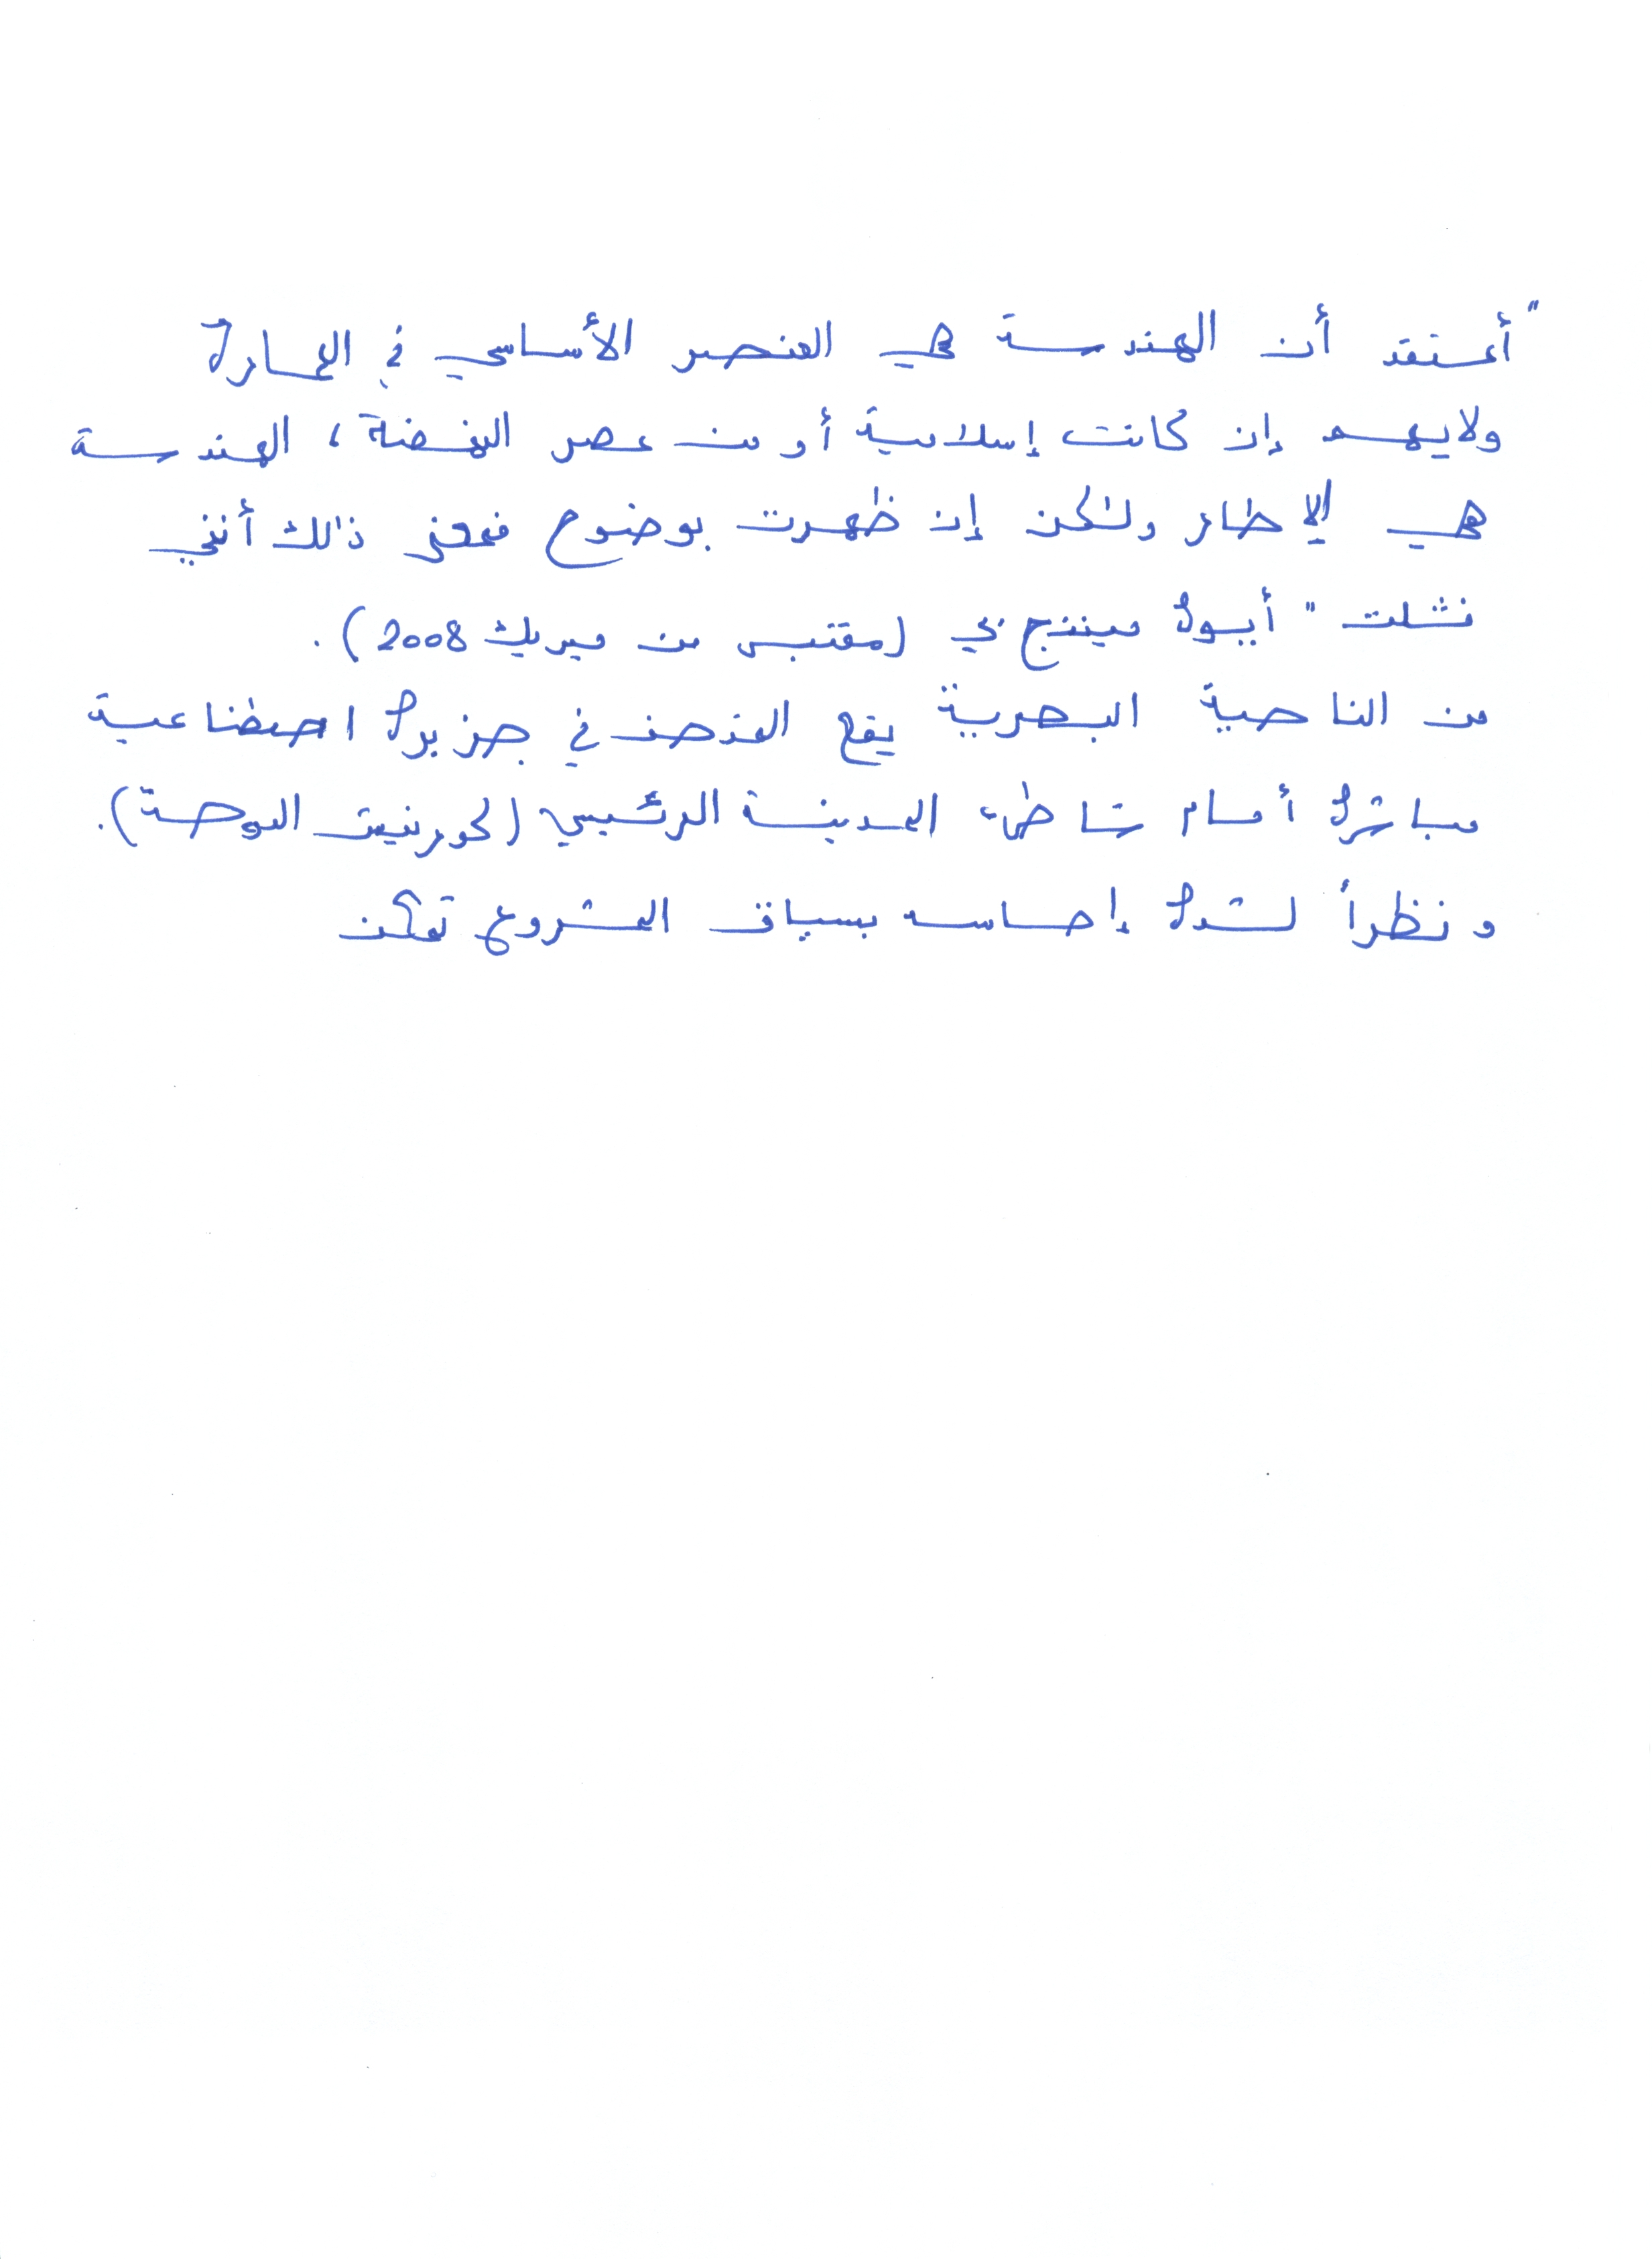 "أعتقد أن الهندسة هي العنصر الأساسي في العمارة
ولايهم إن كانت إسلامية أو من عصر النهضة، الهندسة
هي الإطار ولكن إن ظهرت بوضوح فمعنى ذلك أنني
فشلت" أيوه مينتج بي (مقتبس من ميريك 2008).
من الناحية البصرية يقع المتحف في جزيرة اصطناعية
مباشرة أمام شاطئ المدينة الرئيسي (كورنيت الدوحة).
ونظرأ لشدة إحساسه بسياق المشروع تمكن